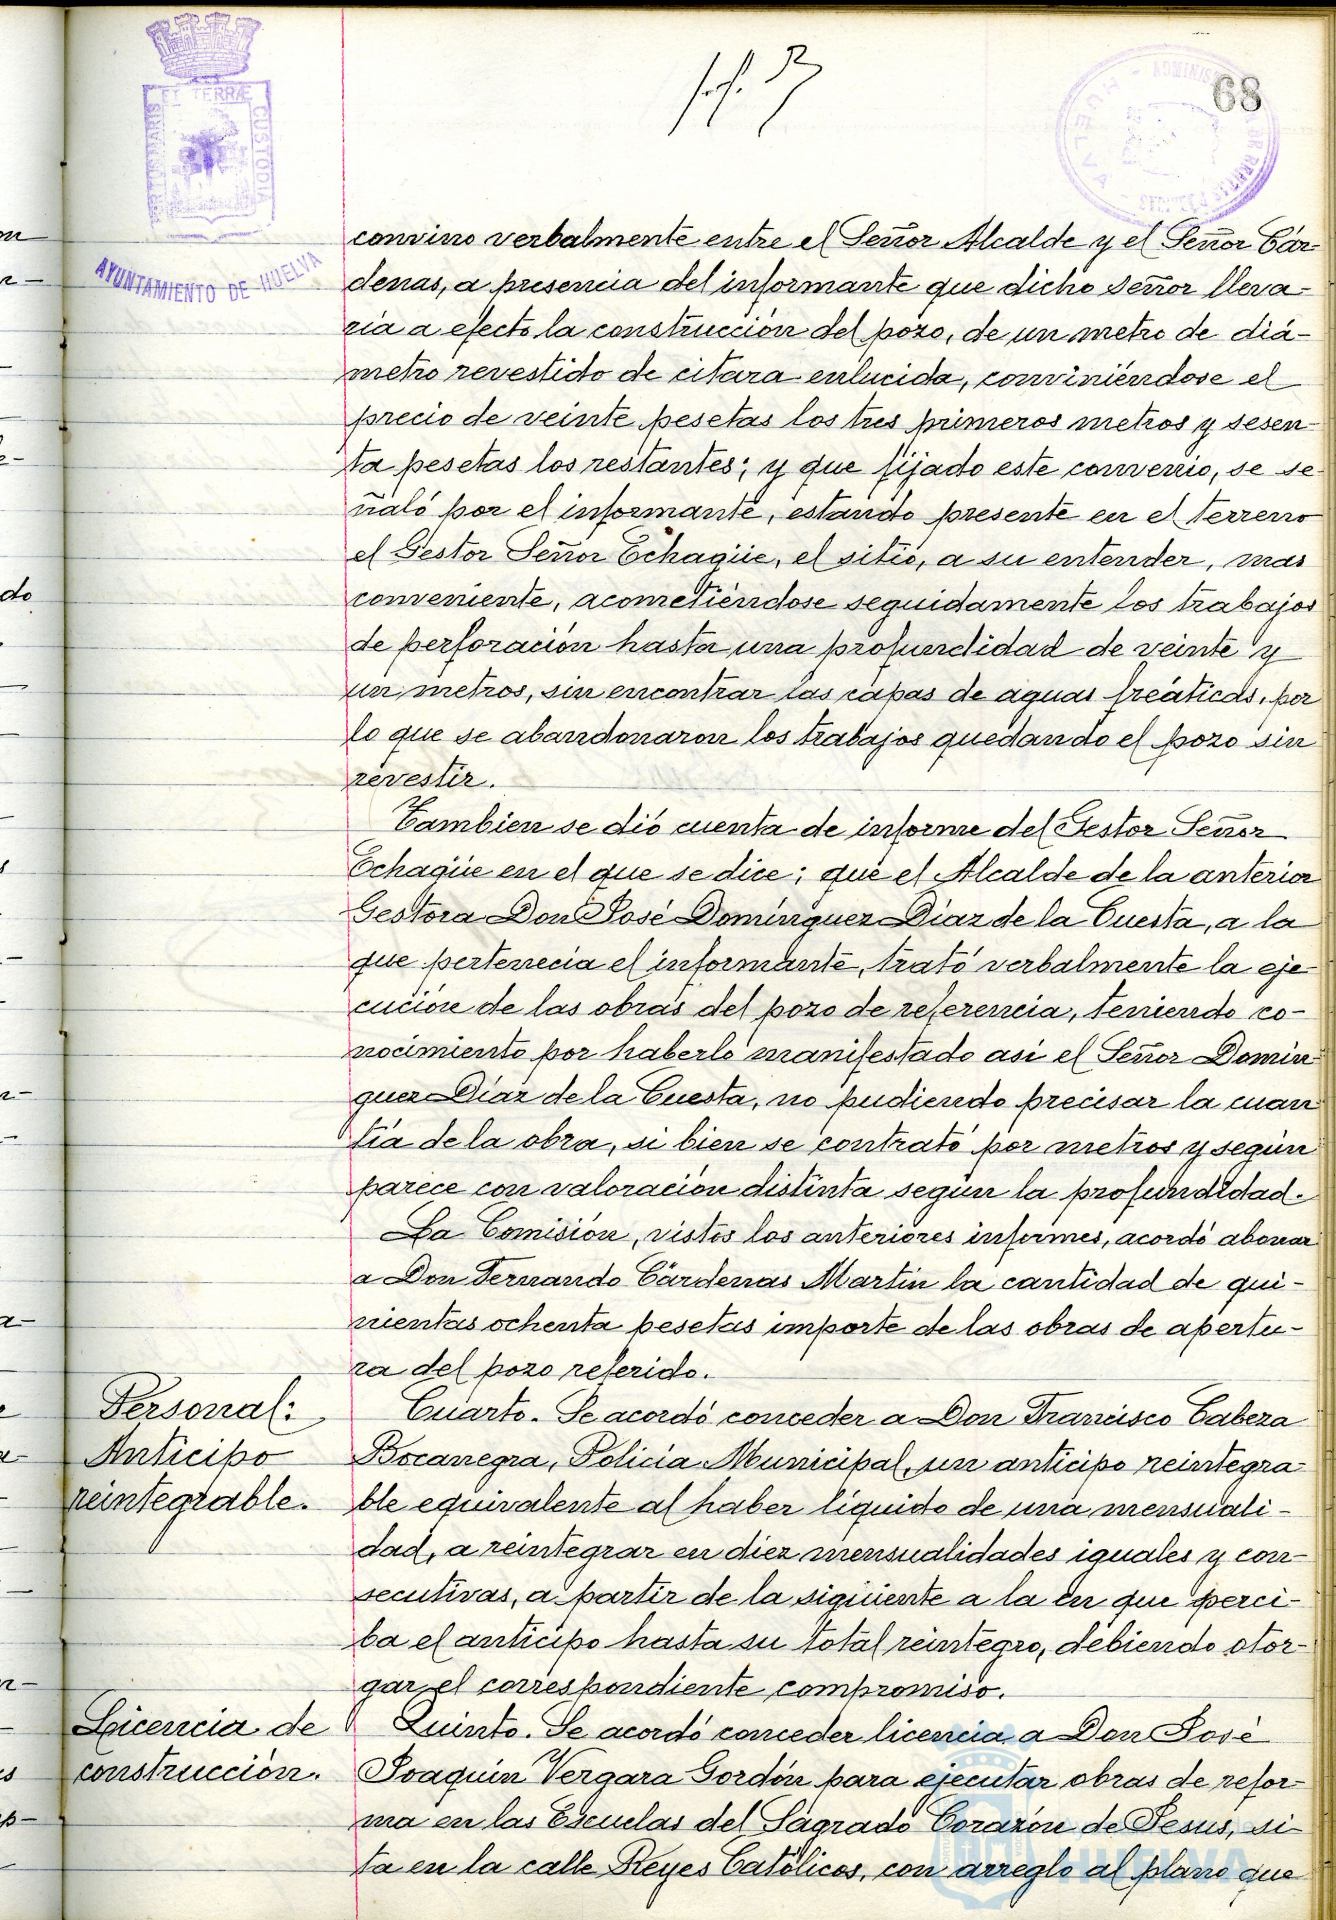 68
PORTUS MARIS ET TERRÆ CUSTODIA
AYUNTAMIENTO DE HUELVA
HUELVA
convino verbalmente entre el Señor Alcalde y el Señor Cár-
denas, a presencia del informante que dicho señor lleva-
ria a efecto la construcción del pozo, de un metro de diá-
metro revestido de citara enlucida, conviniéndose el
precio de veinte pesetas los tres primeros metros y sesen-
ta pesetas los restantes; y que fijado este convenio, se se-
ñaló por el informante, estando presente en el terreno
el Gestor Señor Echagüe, el sitio, a su entender, mas
conveniente, acometiéndose seguidamente los trabajos
de perforación hasta una profundidad de veinte y
un metros, sin encontrar las capas de aguas freáticas, por
lo que se abandonaron los trabajos quedando el pozo sin
revestir.
Tambien se dió cuenta de informe del Gestor Señor
Echagüe en el que se dice; que el Alcalde de la anterior
Gestora Don José Domínguez Díaz de la Cuesta, a la
que pertenecia el informante, trató verbalmente la eje-
cución de las obras del pozo de referencia, teniendo co-
nocimiento por haberlo manifestado así el Señor Domín-
guez Díaz de la Cuesta, no pudiendo precisar la cuan-
tía de la obra, si bien se contrató por metros y según
parece con valoración distinta según la profundidad.
La Comisión, vistos los anteriores informes, acordó abonar
a Don Fernando Cárdenas Martín la cantidad de qui-
nientas ochenta pesetas importe de las obras de apertu-
ra del pozo referido.
Personal:
Anticipo
reintegrable.
Cuarto. Se acordó conceder a Don Francisco Cabeza
Bocanegra, Policía Municipal, un anticipo reintegra-
ble equivalente al haber líquido de una mensuali-
dad, a reintegrar en diez mensualidades iguales y con-
secutivas, a partir de la siguiente a la en que perci-
ba el anticipo hasta su total reintegro, debiendo otor-
gar el correspondiente compromiso.
Licencia de
construcción.
Quinto. Se acordó conceder licencia a Don José
Joaquín Vergara Gordón para ejecutar obras de refor-
ma en las Escuelas del Sagrado Corazón de Jesus, si-
ta en la calle Reyes Católicos, con arreglo al plano que